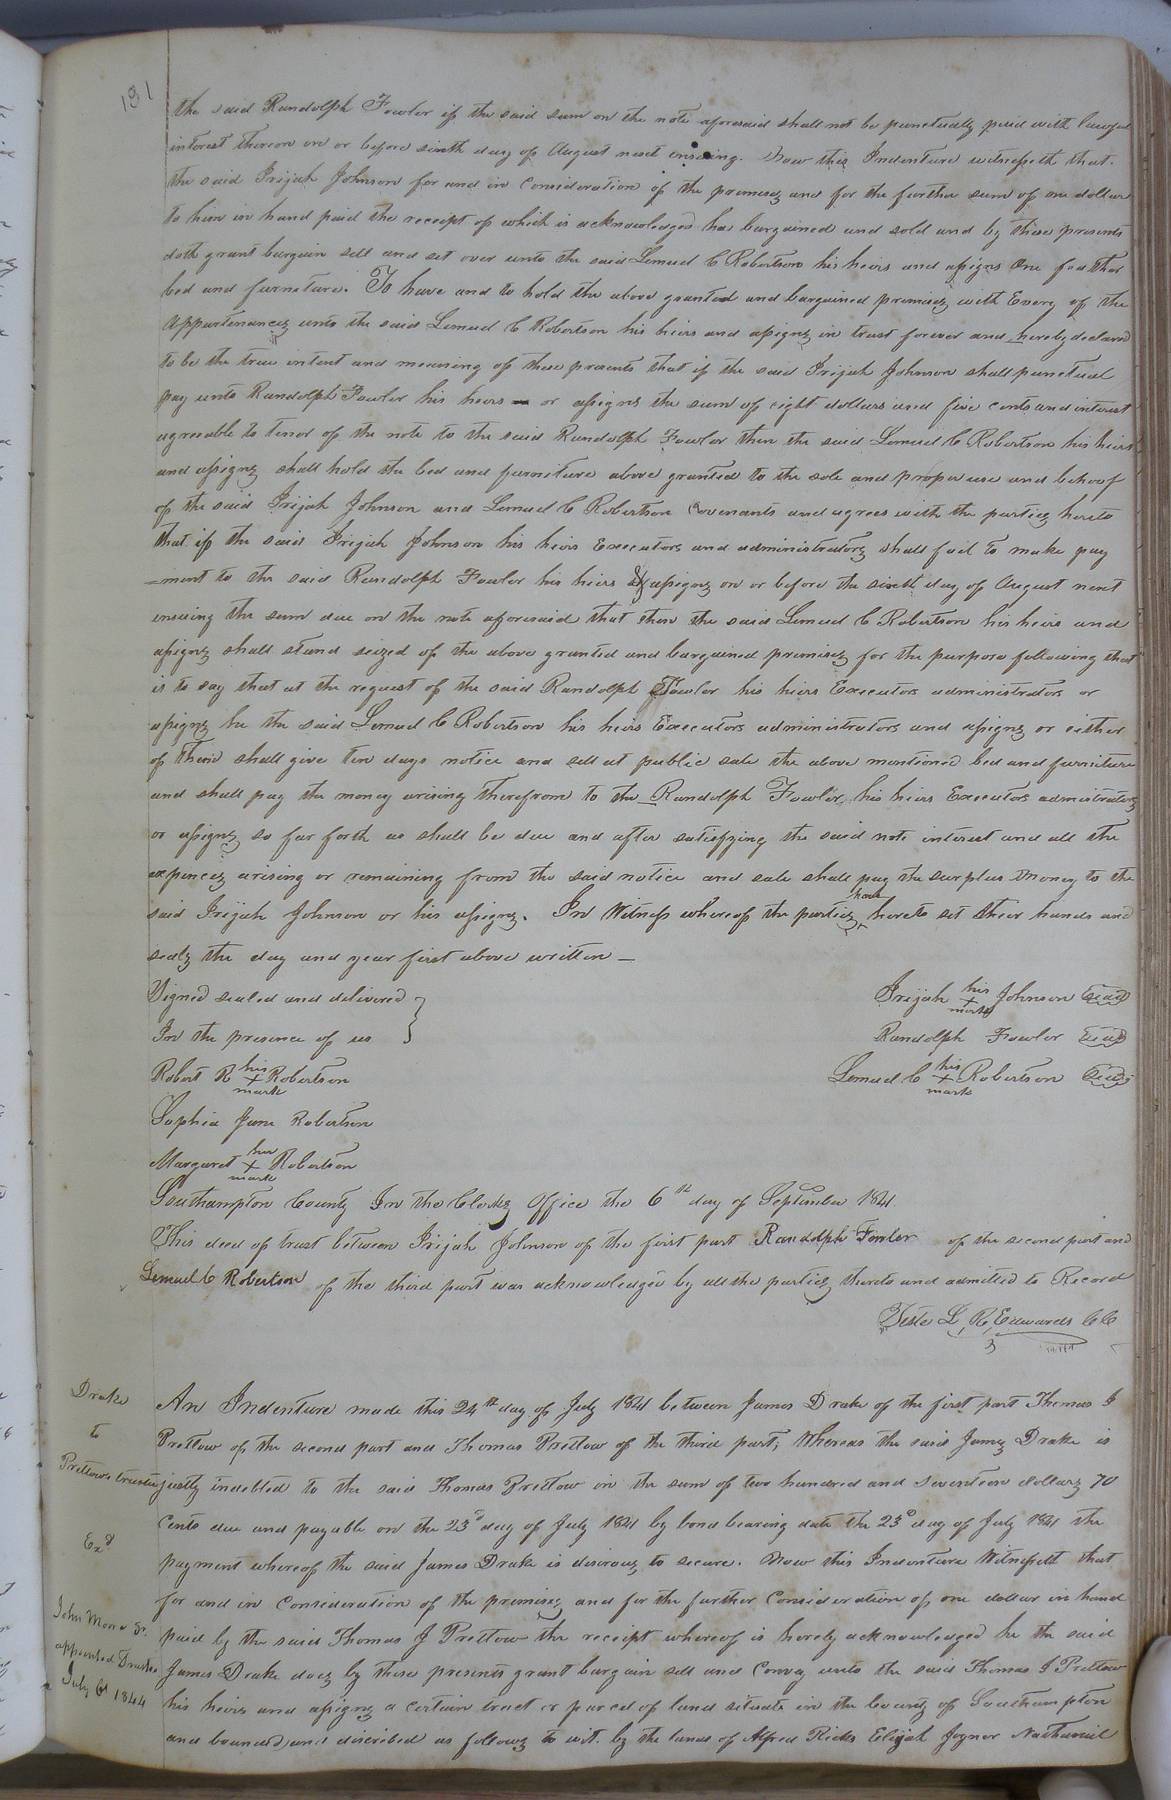 191
the said Randolph Fowler if the said sum on the note aforesaid shall not be punctually paid with lawful
interest thereon on or before sixth day of August next ensuing. Now this Indenture witnesseth that.
the said Irijah Johnson for and in Consideration of the premises and for the further sum of one dollar
to him in hand paid the receipt of which is acknowledged has bargained and sold and by these presents
doth grant bargain sell and set over unto the said Lemuel C Robertson his heirs and assigns One feather
bed and furneture. To have and to hold the above granted and bargained premises with Every of the
Appurtenances unto the said Lemuel C Robertson his heirs and assigns in trust forever and hereby declared
to be the true intent and meaning of these presents that if the said Irijah Johnson shall punctual
pay unto Randolph Fowler his heirs or assigns the sum of eight dollars and five cents and interest
agreeable to tenor of the note to the said Randolph Fowler then the said Lemuel C Robertson his heirs
and assigns shall hold the bed and furniture above granted to the sole and proper use and behoof
of the said Irijah Johnson and Lemuel C Robertson Covenants and agrees with the parties hereto
that if the said Irijah Johnson his heirs Executors and administrators shall fail to make pay
-ment to the said Randolph Fowler his heirs & assigns on or before the sixth day of August next
ensuing the sum due on the note aforesaid that then the said Lemuel C Robertson his heirs and
assigns shall stand seized of the above granted and bargained premises for the purpose following that
is to say that at the request of the said Randolph Fowler his heirs Executors administrators or
assigns he the said Lemuel C Robertson his heirs Executors administrators and assigns or either
of them shall give ten days notice and sell at public sale the above mentioned bed and furniture
and shall pay the money arising therefrom to the Randolph Fowler his heirs Executors admistrators
or assigns so far forth as shall be due and after satisfying the said note interest and all the
expences arising or remaining from the said notice and sale shall pay the surplus money to the
said Irijah Johnson or his assigns. In Witness whereof the parties have hereto set their hands and
seals the day and year first above written —
Signed sealed and delivered }
In the presence of us
Irijah his X mark Johnson Seal
Randolph Fowler Seal
Lemuel C his X mark Robertson Seal
Robert R his X mark Robertson
Sophia Jane Robertson
Margaret her X mark Robertson
Southampton County In the Clerks Office the 6th day of September 1841
This deed of trust between Irijah Johnson of the first part Randolph Fowler of the second part and
Lemuel C Robertson of the third part was acknowledged by all the parties thereto and admitted to Record
Teste L. R. Edwards CC
Drake
to
Pretlows trustee
Exd
John Mona Sr.
appointed Trustee
July 6 1844
An Indenture made this 24th day of July 1841 between James Drake of the first part Thomas J
Pretlow of the second part and Thomas Pretlow of the third part; Whereas the said James Drake is
justly indebted to the said Thomas Pretlow in the sum of two hundred and seventeen dollars 70
cents due and payable on the 23d day of July 1841 by bond bearing date the 23d day of July 1841 the
payment whereof the said James Drake is desirous to secure. Now this Indenture Witnesseth that
for and in Consideration of the premises and for the further Consideration of one dollar in hand
paid by the said Thomas J Pretlow the receipt whereof is hereby acknowledged he the said
James Drake does by these presents grant bargain sell and Convey unto the said Thomas J Pretlow
his heirs and assigns a certain tract or parcel of land situate in the County of Southampton
and bounded and discribed as follows to wit. by the lands of Alfred Ricks Elijah Joyner Nathaniel